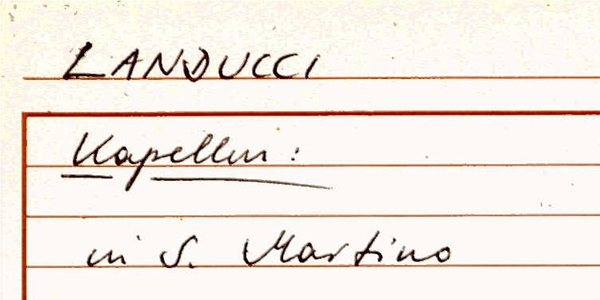 LANDUCCI
Kapellen:
in S. Martino